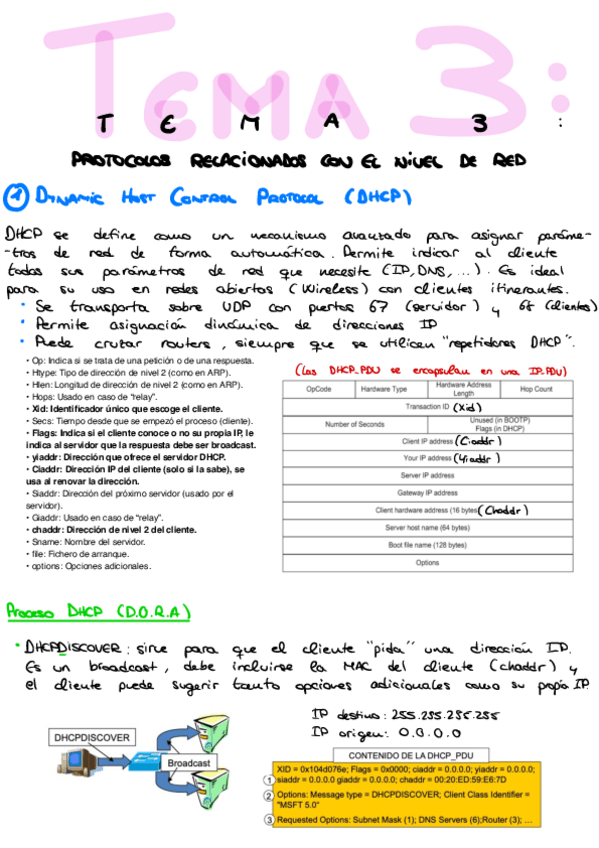 TEMA 3:
T E M A 3 :
PROTOCOLOS RELACIONADOS CON EL NIVEL DE RED
1 DYNAMIC HOST CONTROL PROTOCOL (DHCP)
DHCP se define como un mecanismo avanzado para asignar paráme-
-tros de red de forma automática. Permite indicar al cliente
todos sus parámetros de red que necesite (IP, DNS, ...). Es ideal
para su uso en redes abiertas (Wireless) con clientes itinerantes.
• Se transporta sobre UDP con puertos 67 (servidor) y 68 (clientes)
• Permite asignación dinámica de direcciones IP
• Puede cruzar routers, siempre que se utilicen "repetidores DHCP".
• Op: Indica si se trata de una petición o de una respuesta.
• Htype: Tipo de dirección de nivel 2 (como en ARP).
• Hlen: Longitud de dirección de nivel 2 (como en ARP).
• Hops: Usado en caso de "relay".
• Xid: Identificador único que escoge el cliente.
• Secs: Tiempo desde que se empezó el proceso (cliente).
• Flags: Indica si el cliente conoce o no su propia IP, le
indica al servidor que la respuesta debe ser broadcast.
• yiaddr: Dirección que ofrece el servidor DHCP.
• Ciaddr: Dirección IP del cliente (solo si la sabe), se
usa al renovar la dirección.
• Siaddr: Dirección del próximo servidor (usado por el
servidor).
• Giaddr: Usado en caso de "relay".
• chaddr: Dirección de nivel 2 del cliente.
• Sname: Nombre del servidor.
• file: Fichero de arranque.
• options: Opciones adicionales.
(Las DHCP-PDU se encapsulan en una IP-PDU)
OpCode Hardware Type Hardware Address Length Hop Count
Transaction ID (Xid)
Number of Seconds Unused (in BOOTP) Flags (in DHCP)
Client IP address (Ciaddr)
Your IP address (Yiaddr)
Server IP address
Gateway IP address
Client hardware address (16 bytes) (Chaddr)
Server host name (64 bytes)
Boot file name (128 bytes)
Options
Proceso DHCP (D.O.R.A)
• DHCPDISCOVER: sirve para que el cliente "pida" una dirección IP.
Es un broadcast, debe incluirse la MAC del cliente (chaddr) y
el cliente puede sugerir tanto opciones adicionales como su popia IP.
IP destino: 255.255.255.255
IP origen: 0.0.0.0
DHCPDISCOVER
Broadcast
CONTENIDO DE LA DHCP_PDU
1 XID = 0x104d076e; Flags = 0x0000; ciaddr = 0.0.0.0; yiaddr = 0.0.0.0;
siaddr = 0.0.0.0 giaddr = 0.0.0.0; chaddr = 00:20:ED:59:E6:7D
2 Options: Message type = DHCPDISCOVER; Client Class Identifier =
"MSFT 5.0"
3 Requested Options: Subnet Mask (1); DNS Servers (6);Router (3); …